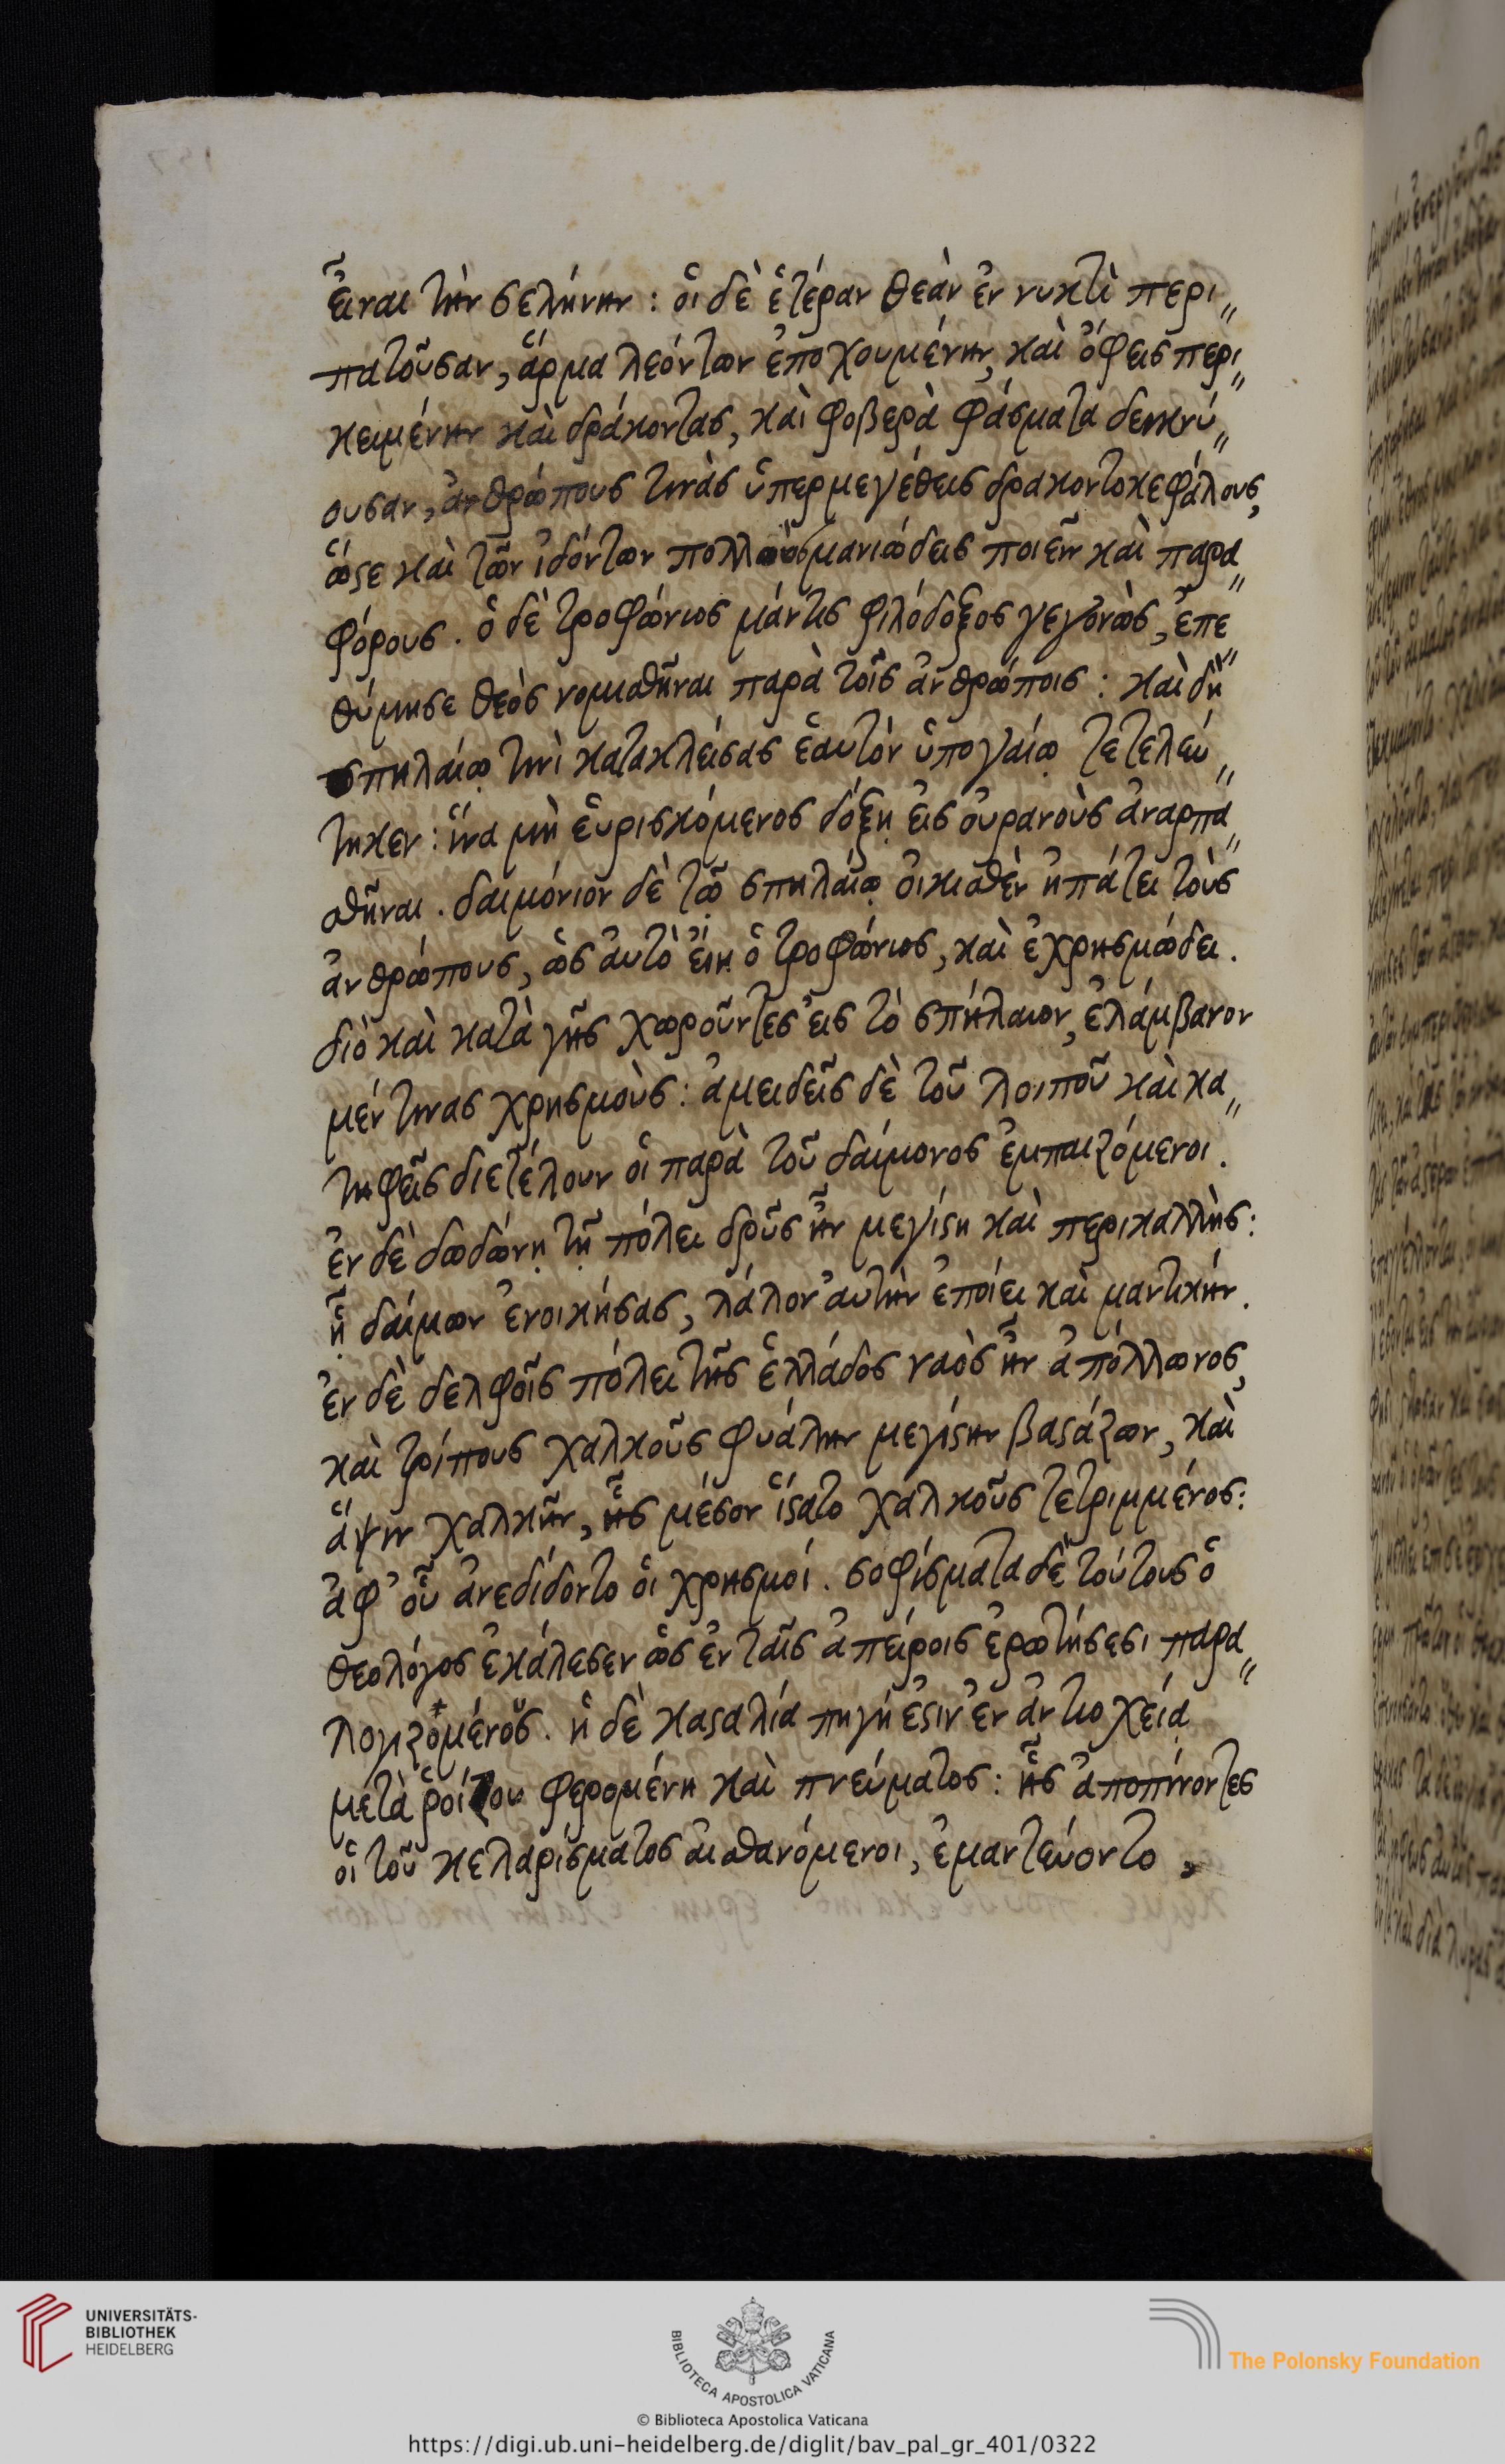 εἶναι τὴν σελήνην: οἱ δὲ ἑτέραν θεὰν ἐν νυκτὶ περι„
πατοῦσαν, ἅρμα λεόντων ἐποχουμένην, καὶ ὄφεις περι„
κειμένην καὶ δράκοντας, καὶ φοβερὰ φάσματα δεικνύ„
ουσαν, ἀνθρώπους τινὰς ὑπερμεγέθεις δρακοντοκεφάλους,
ὥστε καὶ τῶν ἰδόντων πολλοὺς μανιώδεις ποιεῖν καὶ παρα„
φόρους. ὁ δὲ τροφώνιος μάντις φιλόδοξος γεγονὼς, ἐπε„
θύμησε θεὸς νομισθῆναι παρὰ τοῖς ἀνθρώποις: καὶ δὴ
σπηλαίῳ τινὶ κατακλείσας ἑαυτὸν ὑπογαίῳ τετελεύ„
τηκεν: ἵνα μὴ εὑρισκόμενος δόξῃ εἰς οὐρανοὺς ἀναρπα„
σθῆναι. δαιμόνιον δὲ τῷ σπηλαίῳ οἰκισθὲν ἠπάτει τοὺς
ἀνθρώπους, ὡς αὐτὸ εἴη ὁ τροφώνιος, καὶ ἐχρησμώδει.
διὸ καὶ κατὰ γῆς χωροῦντες εἰς τὸ σπήλαιον, ἐλάμβανον
μέν τινας χρησμοὺς: ἀμειδεῖς δὲ τοῦ λοιποῦ καὶ κα„
τηφεῖς διετέλουν οἱ παρὰ τοῦ δαίμονος ἐμπαιζόμενοι.
ἐν δὲ δωδώνῃ τῇ πόλει δρῦς ἦν μεγίστη καὶ περικαλλὴς:
ᾗ δαίμων ἐνοικήσας, λάλον αὐτὴν ἐποίει καὶ μαντικήν.
ἐν δὲ δελφοῖς πόλει τῆς ἑλλάδος ναὸς ἦν ἀπόλλωνος,
καὶ τρίπους χαλκοῦς φυάλην μεγίστην βαστάζων, καὶ
ἅψιν χαλκῆν, ἧς μέσον ἵστατο χαλκοῦς τετριμμένος:
ἀφ' οὗ ἀνεδίδοντο οἱ χρησμοί. σοφίσματα δὲ τούτους ὁ
θεολόγος ἐκάλεσεν ὡς ἐν ταῖς ἀπείροις ἐρωτήσεσι παρα„
λογιζομένους. ἡ δὲ κασταλία πηγή ἐστιν ἐν ἀντιοχείᾳ
μετὰ ῥοίζου φερομένη καὶ πνεύματος: ἧς ἀποπίνοντες
οἱ τοῦ κελαρίσματος αἰσθανόμενοι, ἐμαντεύοντο,
UNIVERSITÄTS-
BIBLIOTHEK
HEIDELBERG
BIBLIOTECA APOSTOLICA VATICANA
The Polonsky Foundation
© Biblioteca Apostolica Vaticana
https://digi.ub.uni-heidelberg.de/diglit/bav_pal_gr_401/0322